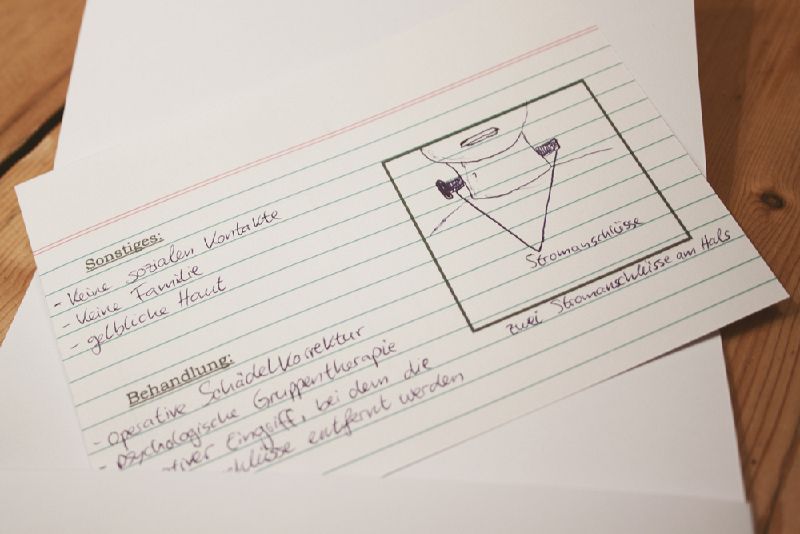 Sonstiges:
- Keine sozialen Kontakte
- Keine Familie
- gelbliche Haut
Stromanschlüsse
zwei Stromanschlüsse am Hals
Behandlung:
- Operative Schädelkorrektur
- Psychologische Gruppentherapie
Eingriff, bei dem die
entfernt werden